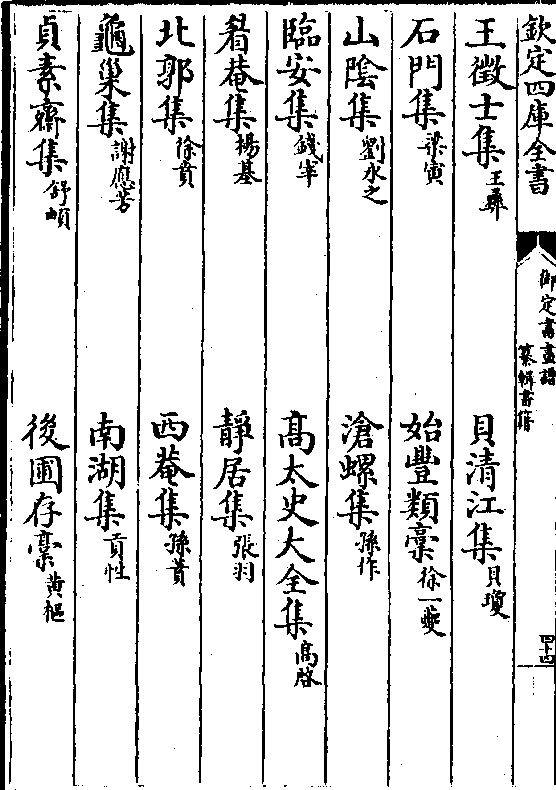 欽定四庫全書
御定書畫譜
纂輯書籍
四十四
王徵士集 王彝
貝清江集 貝瓊
石門集 梁寅
始豐類稾 徐一夔
山陰集 劉永之
滄螺集 孫作
臨安集 錢宰
高太史大全集 高啓
眷菴集 楊基
靜居集 張羽
北郭集 徐賁
西菴集 孫蕡
龜巢集 謝應芳
南湖集 貢性
貞素齋集 舒頔
後圃存稾 黄樞